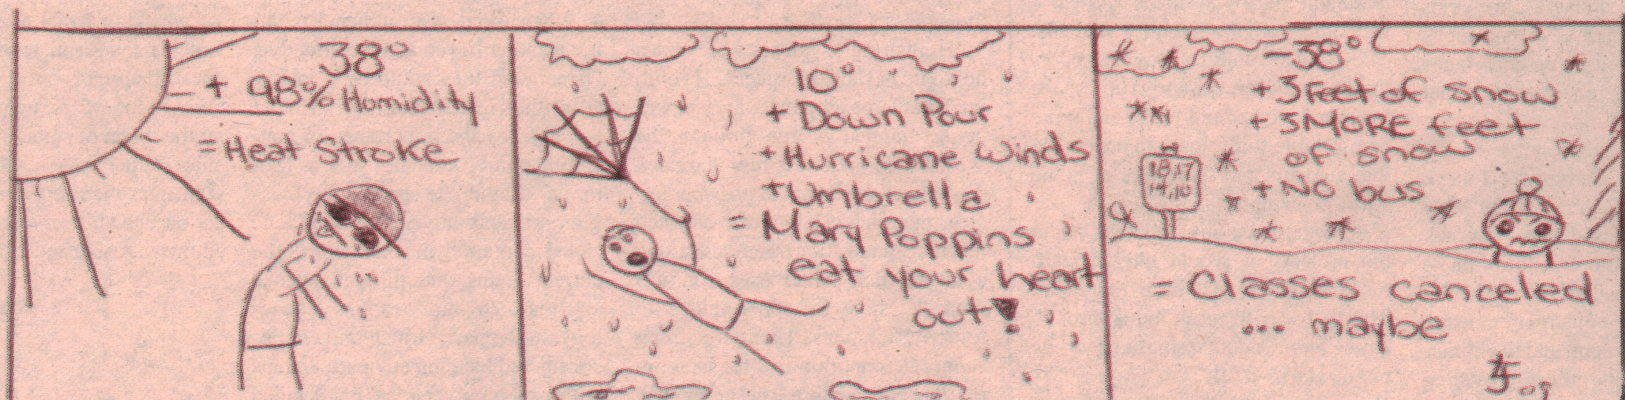 38°
+ 98% Humidity
= Heat Stroke
10°
+ Down Pour
+ Hurricane Winds
+ Umbrella
= Mary Poppins
eat your heart
out!
-38°
+ 3 Feet of snow
+ 3 MORE feet
of snow
+ No bus
18,17
14,10
= Classes canceled
... maybe